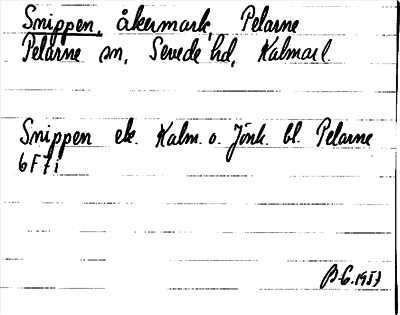 Snippen, åkermark, Pelarne
Pelarne sn, Sevede hd, Kalmar l.
Snippen ek. Kalm. o. Jönk. bl. Pelarne
6F7i
B-G. 1957